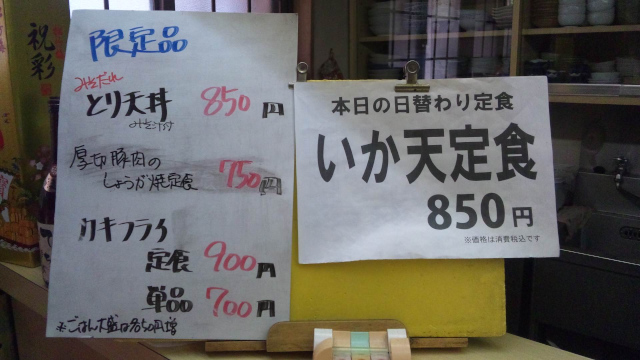 祝彩
限定品
みそだれ
とり天丼 850円
みそ汁付
厚切豚肉の
しょうが焼定食 750円
カキフライ
定食 900円
単品 700円
※ごはん大盛は各50円増
本日の日替わり定食
いか天定食
850円
※価格は消費税込です